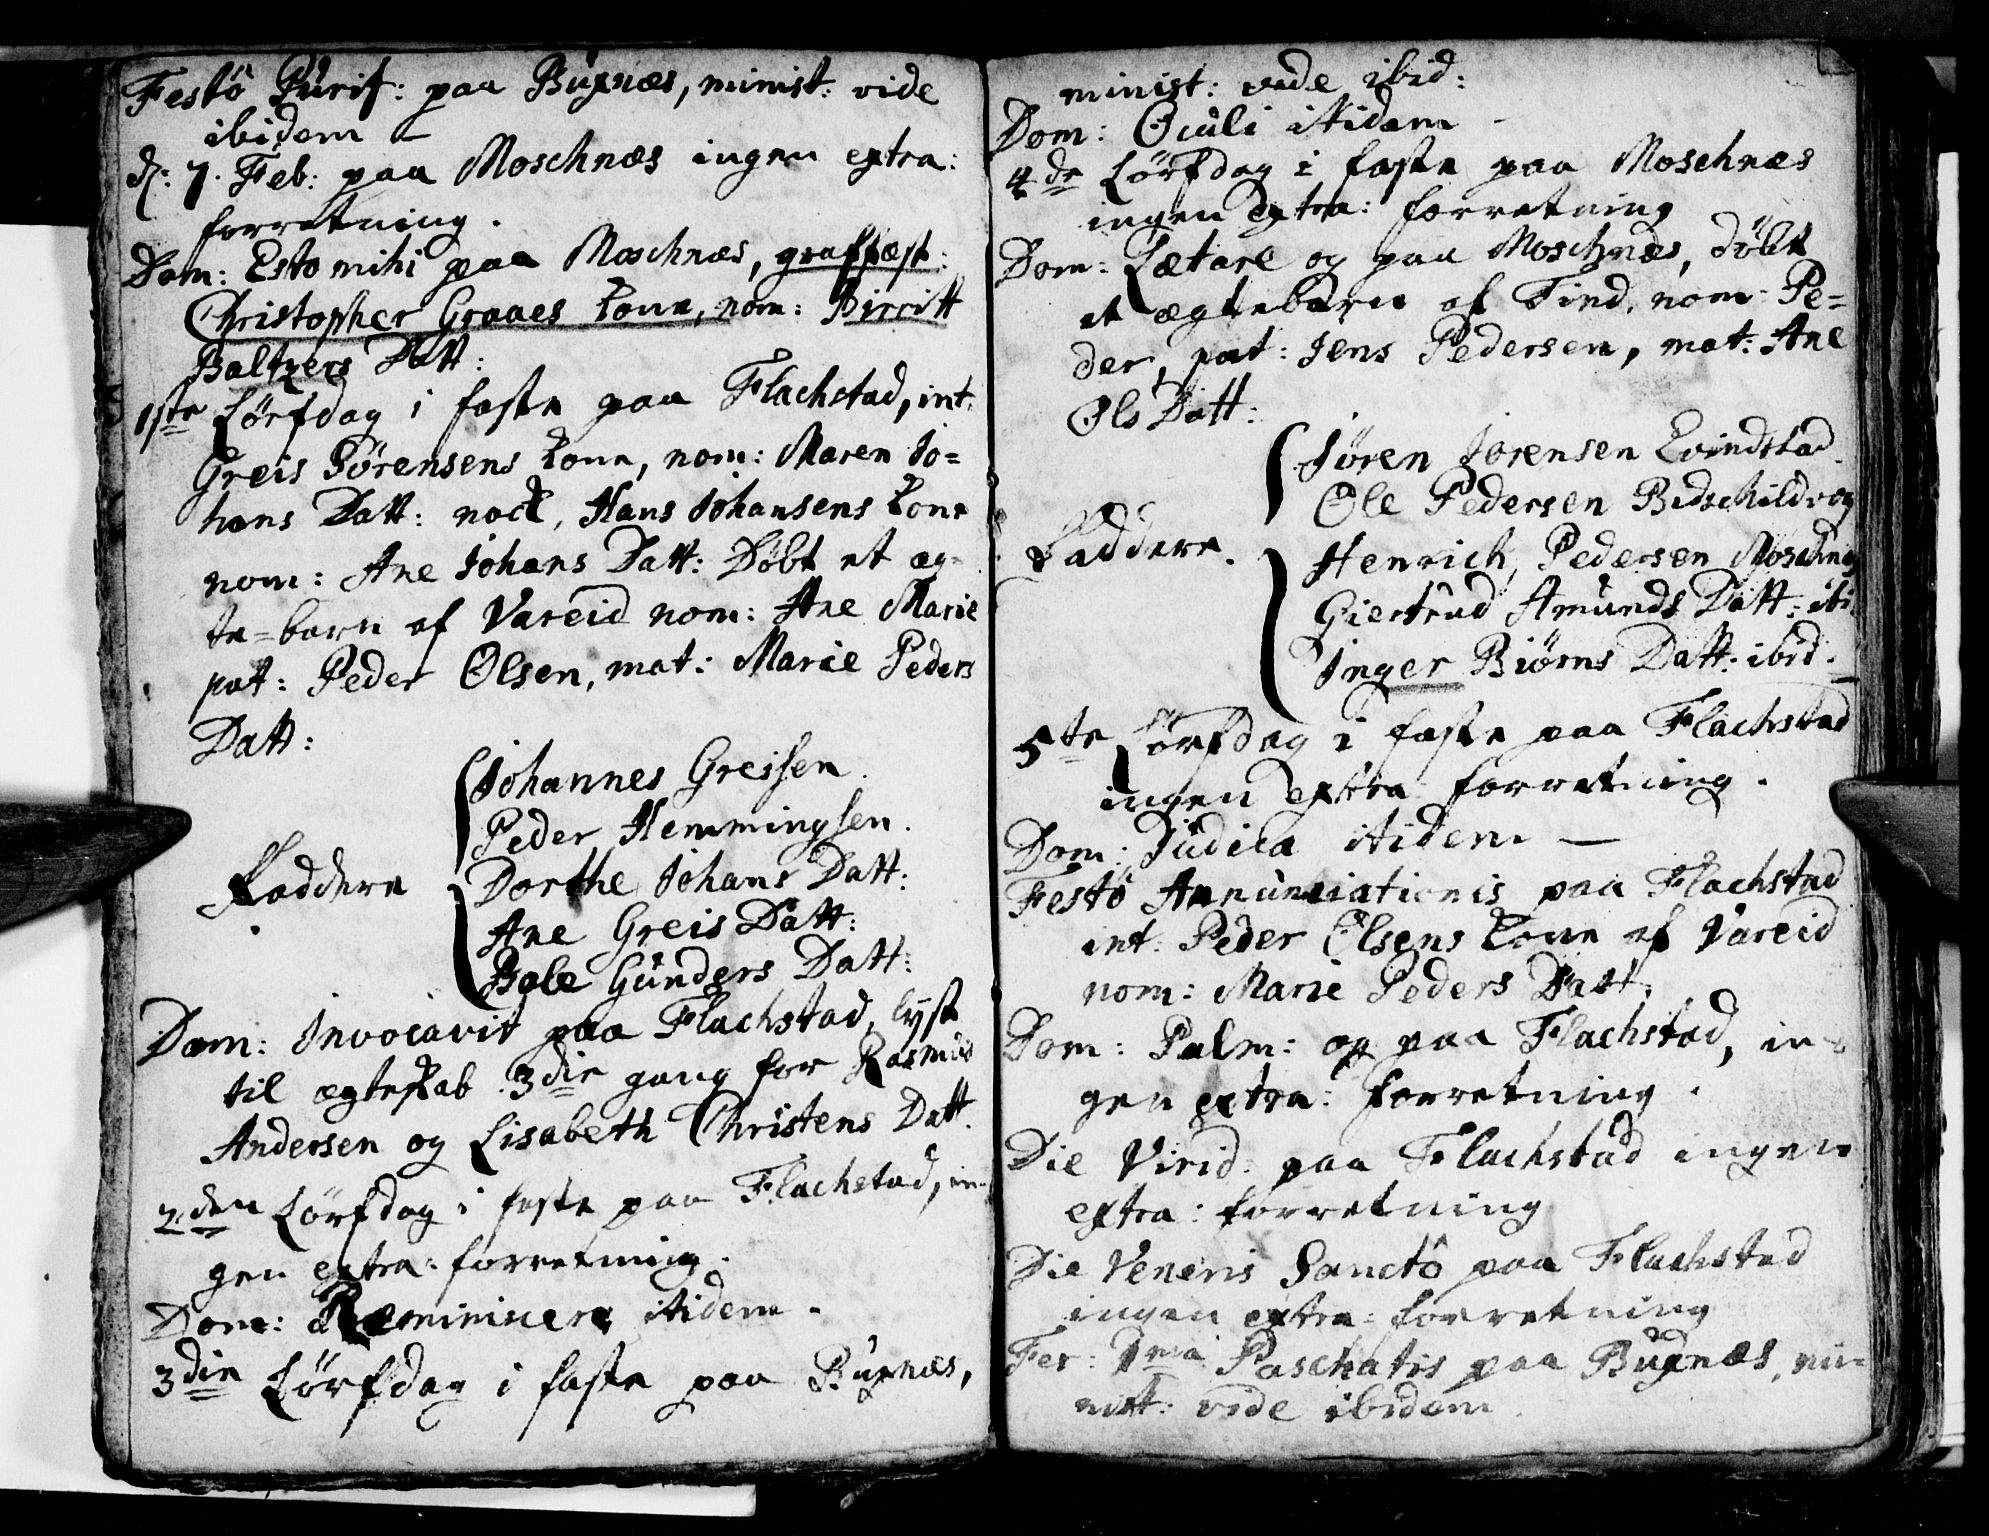 Festô Purif: paa Buxnæs, minist: vide
ibidem –
d: 7. Feb: paa Moschnæs ingen extra:
forretning.
Dom: Esto mihi paa Moschnæs, graffæst:
Christopher Graaes Kone, nom: Birritt
Baltzers Datt:
1ste Lørfdag i faste paa Flachstad, int.
Greis Sørensens Kone, nom: Maren Jo=
hans Datt: nock, Hans Johansens Kone
nom: Ane Johans Datt: Døbt et æg-
te=barn af Vareid nom: Ane Marie
pat: Peder Olsen, mat: Marie Peders
Datt:
Johannes Greissen.
Peder Hemmingsen.
Faddere
Dorthe Johans Datt:
Ane Greis Datt:
Bole Gunders Datt:
Dom: Invocavit paa Flachstad, lyst
til ægteskab 3die gang for Rasmus
Andersen og Lisabeth Christens Datt.
2den Lørfdag i faste paa Flachstad, in-
gen extra: forretning.
Dom: Reminiscere itidem.
3die Lørfdag i faste paa Buxnæs,
minist: vide ibid:
Dom: Oculi itidem -
4de Lørfdag i faste paa Moschnæs
ingen extra: forretning
Dom: Lætare og paa Moschnæs, døbt
et ægtebarn af Tind, nom: Pe=
der, pat: Jens Pedersen, mat: Ane
Ols Datt:
Søren Sorensen Qvindstad
Ole Pedersen
Faddere.
Henrich Pedersen Moschnæs
Giertrud Amunds Datt: ibi
Inger Biørns Datt: ibid.
5te Lørfdag i faste paa Flachstad
ingen extra forretning.
Dom: Judica itidem —
Festô Annunciationis paa Flachstad
int: Peder Olsens Kone af Vareid
nom: Marie Peders Datt:
Dom: Palm: og paa Flachstad, in-
gen extra: forretning.
Die Virid: paa Flachstad ingen
extra: forretning
Die Veneris Sanctô paa Flachstad
ingen extra: forretning
Fer: 1ma Paschatis paa Buxnæs, mi=
nist: vide ibidem.